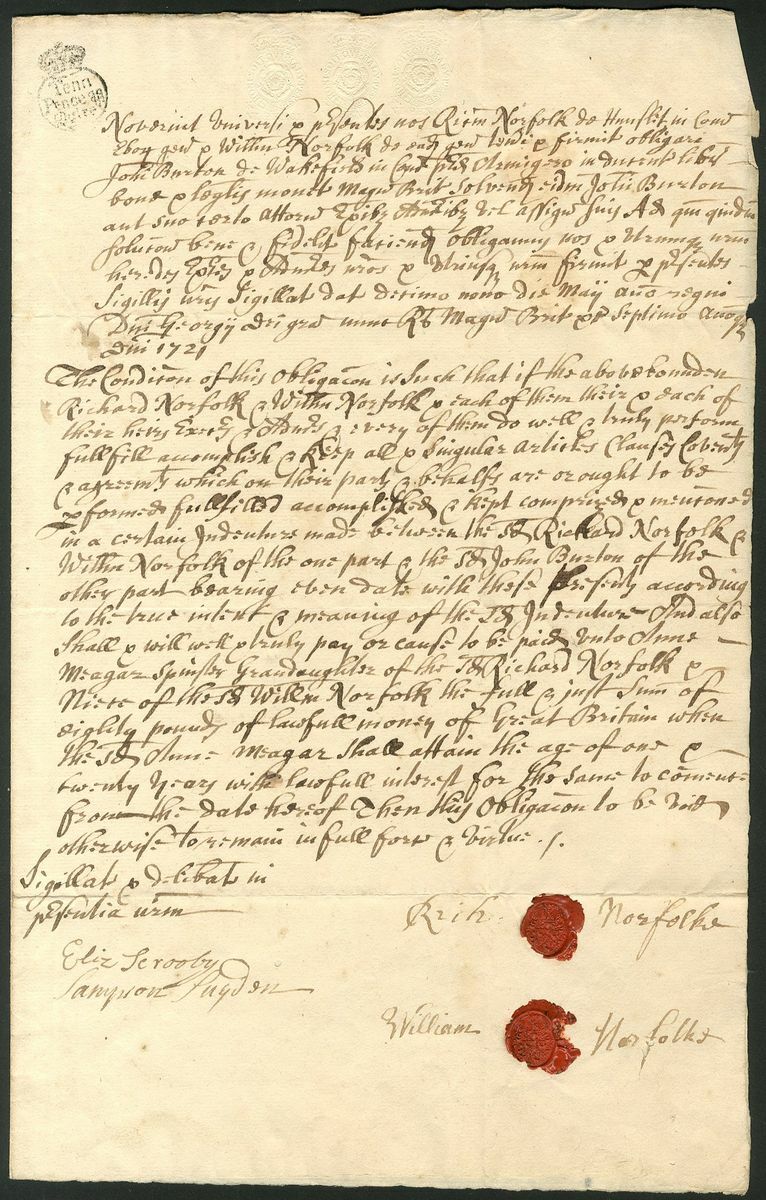 Tenn
Pence
Quire
Noverint Universi p psentes nos Ricm Norfolk de Hunslet in Com
Ebor gen & Willm Norfolk de ead gen teneri & firmit obligari
Johi Burton de Wakefield in Com pred Armigero in ducent libris
bone & legalis monet Magne Brit Solvend eidm Johi Burton
aut suo certo Attorn Exibz Admibz vel assign suis Ad quam quidm
solucon bene & fidelit faciend obligamus nos & Utrumqz nrm
heredes Exres & Admres nros & Utriusqz nrm firmit p psentes
Sigillis nris Sigillat dat decimo nono die Maij Anno regni
Dni Georgij dei gra nunc Rs Magne Brit &c Septimo Annoqz
Dni 1721
The Condicon of this Obligacon is Such that if the above bounden
Richard Norfolk & Willm Norfolk & each of them their & each of
their heirs Execrs & Admrs & every of them do well & truly perform
fullfill accomplish & keep all & Singular Articles Clauses Covents
& agreemts which on their parts & behalfs are or ought to be
pformed fullfilled accomplished & kept comprized & mentioned
in a certain Indenture made between the sd Richard Norfolk &
Willm Norfolk of the one part & the sd John Burton of the
other part bearing even date with these presents according
to the true intent & meaning of the sd Indenture And also
Shall & will well & truly pay or cause to be paid unto Anne
Meagar Spinster Grandaughter of the sd Richard Norfolk &
Niece of the sd Willm Norfolk the full & just Sum of
eighty pounds of lawfull money of Great Britain when
the sd Anne Meagar Shall attain the age of one &
twenty Years with lawfull interest for the same to comence
from the date hereof Then this Obligacon to be void
otherwise to remain in full force & virtue ./.
Sigillat & delibat in
psentia nrm
Rich. Norfolke
Eliz Scrooby
Sampson Sugden
William Norfolke